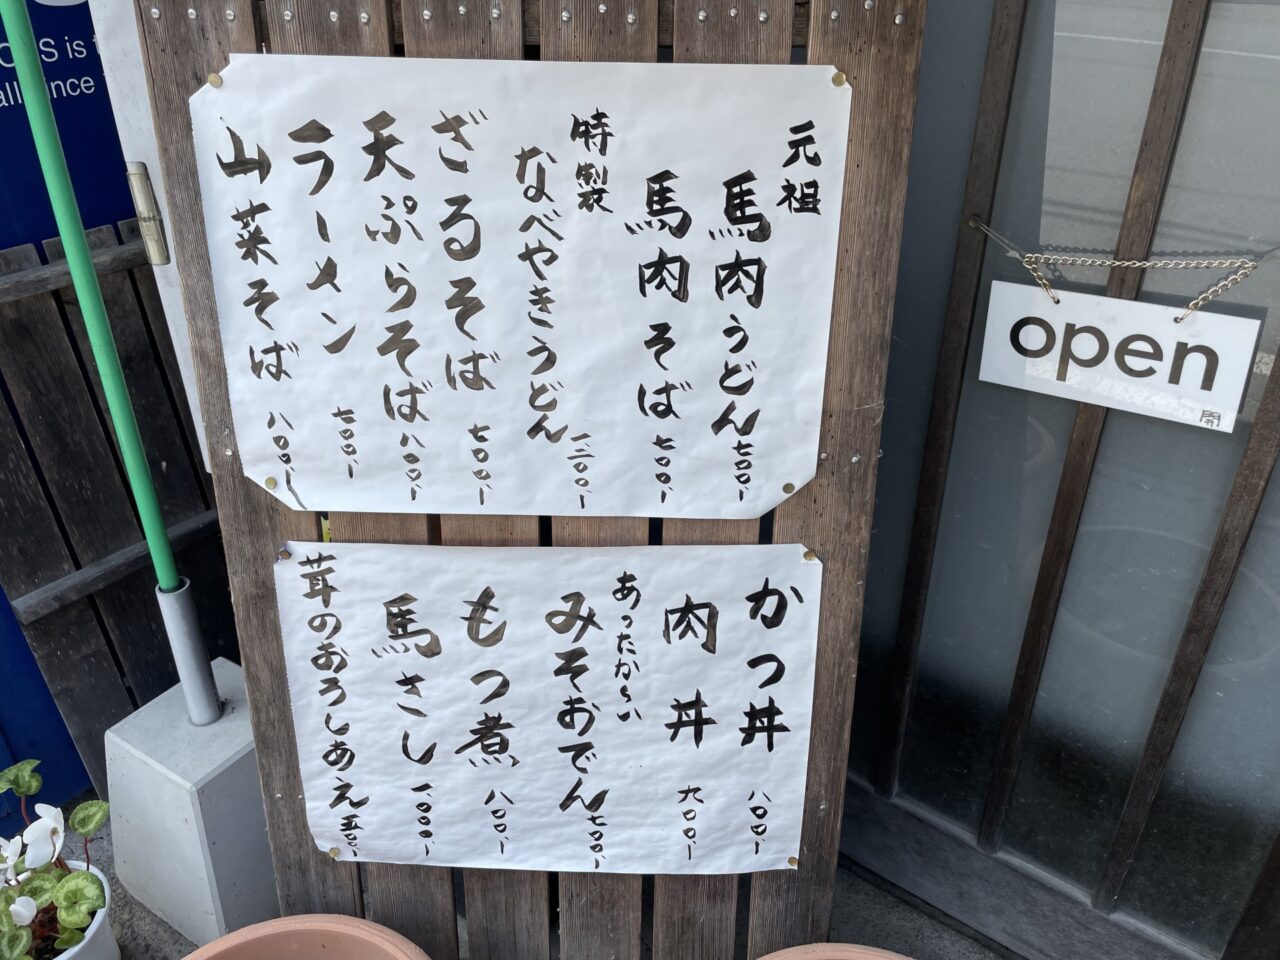 元祖
馬肉うどん 七〇〇、
馬肉そば 七〇〇、
特製
なべやきうどん 一、二〇〇、
ざるそば 七〇〇、
天ぷらそば 八〇〇、
ラーメン 七〇〇、
山菜そば 八〇〇、
かつ丼 八〇〇、
肉丼 九〇〇、
あったか〜い
みそおでん 七〇〇、
もつ煮 八〇〇、
馬さし 一、〇〇〇、
茸のおろしあえ 五〇〇、
open
開
is